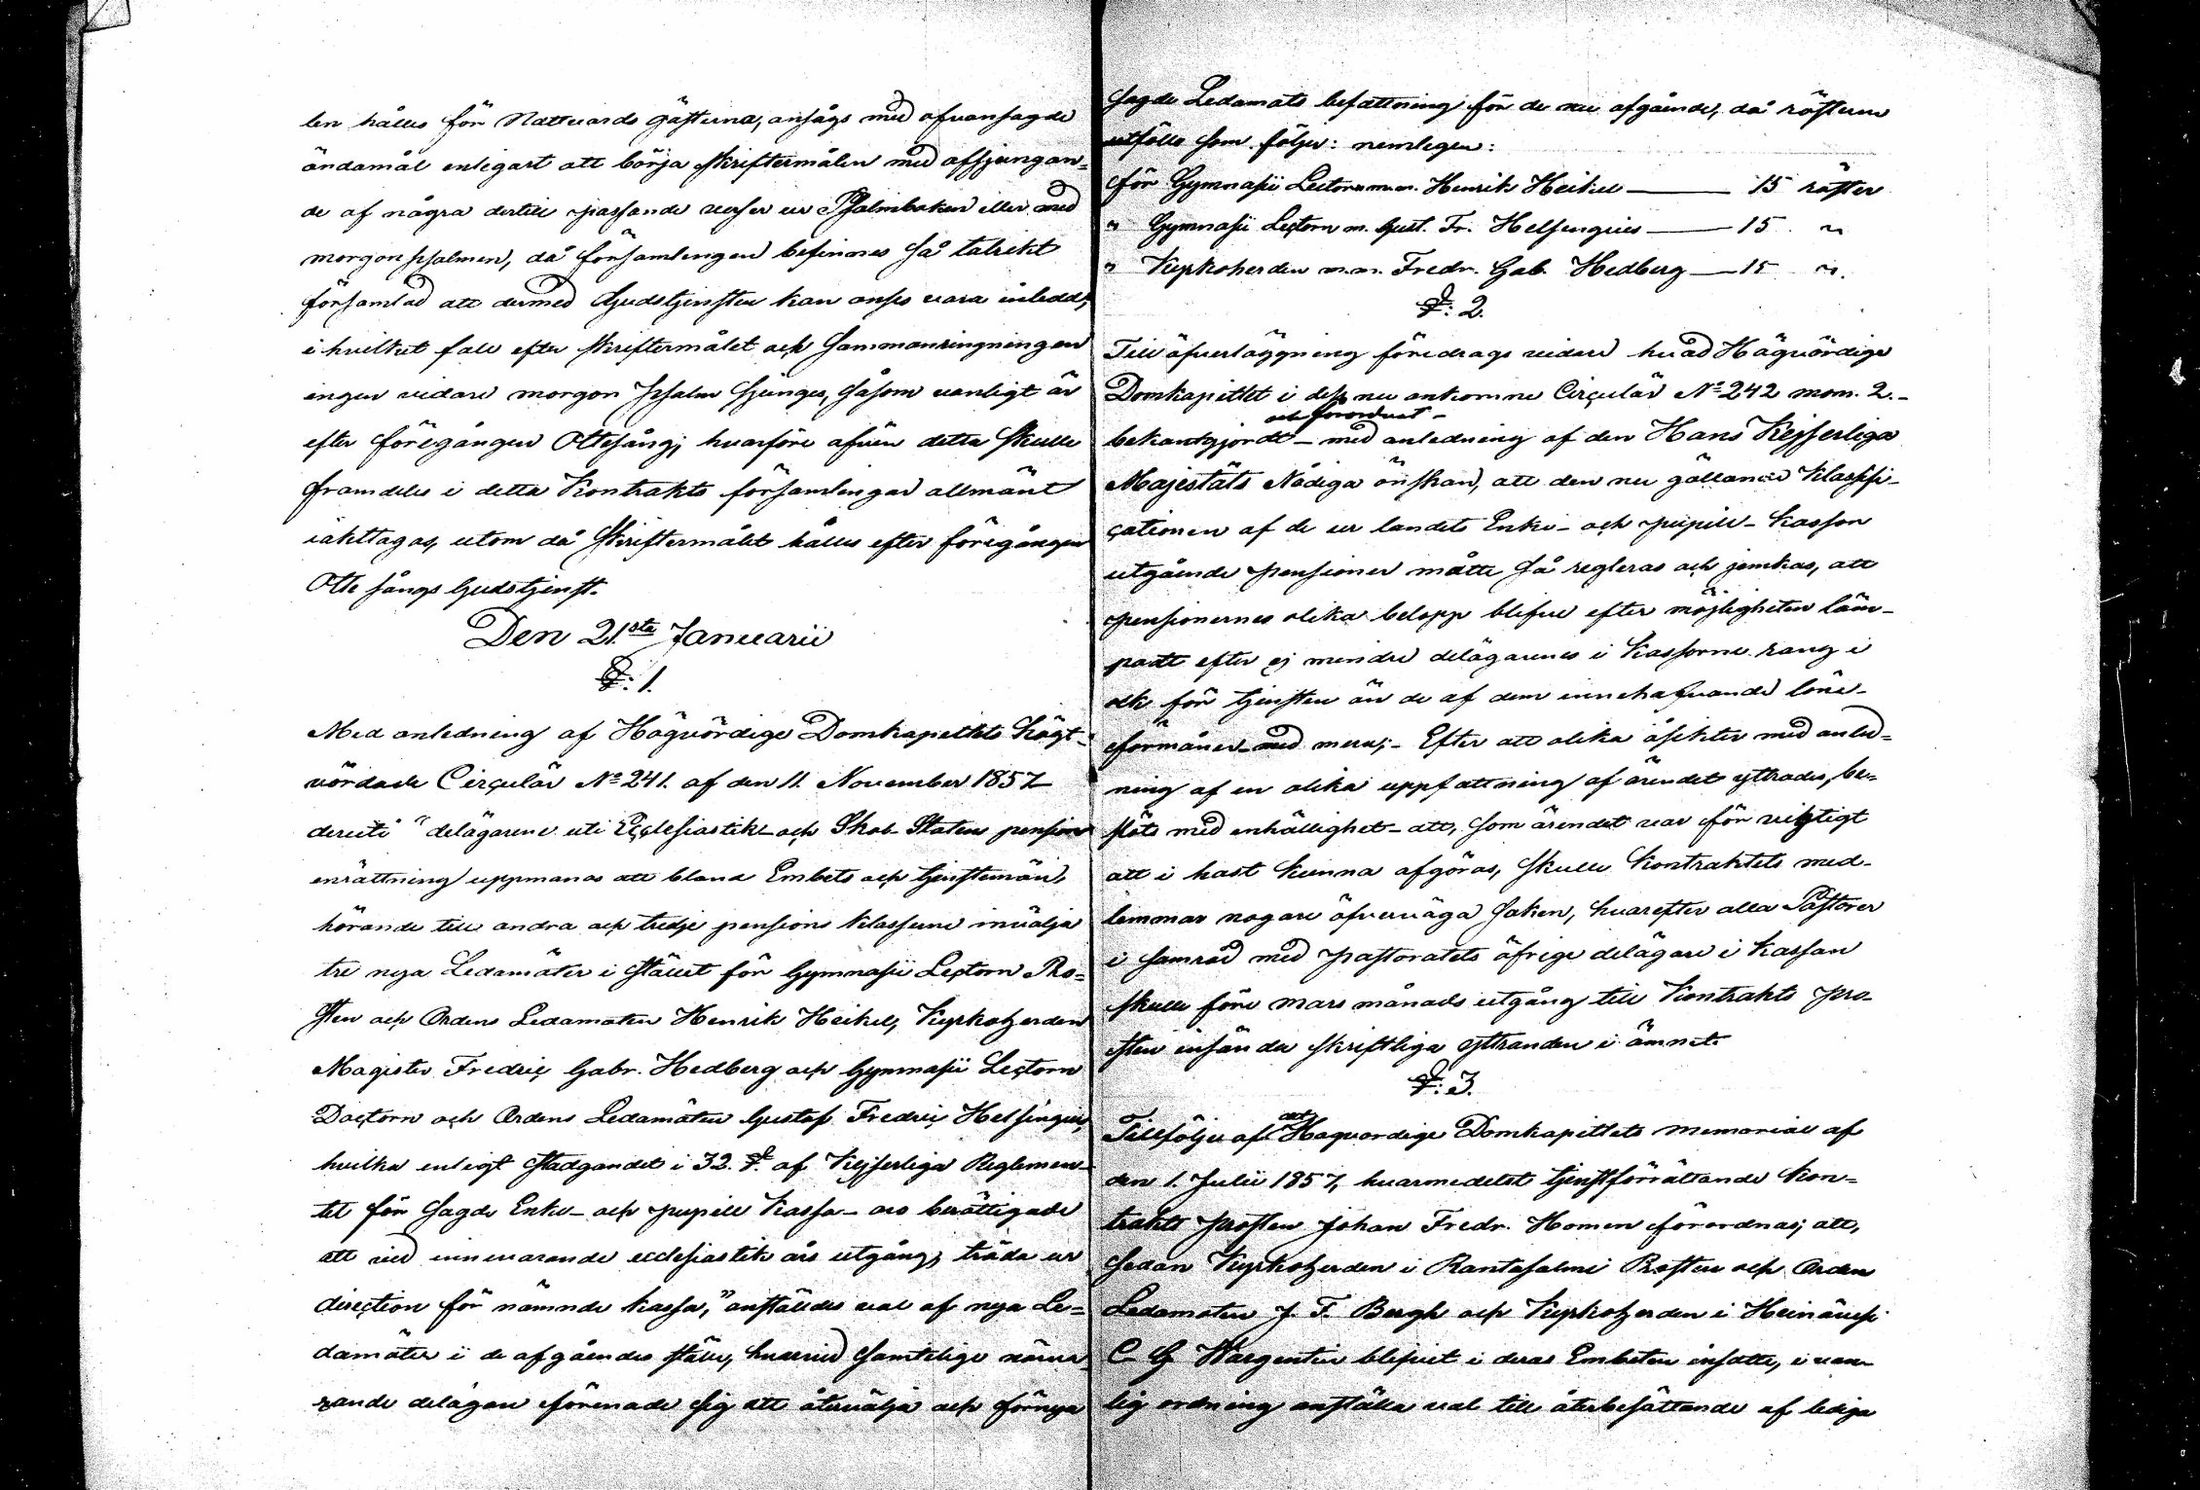 len hålles för Nattvards gästerna, ansågs med ofvansagde
ändamål enligast att börja skriftermålen med afsjungan=
de af några dertill passande verser ur Psalmboken eller med
morgon psalmen, då församlingen befinnes så talrikt
församlad att dermed Gudstjensten kan anses vara inledd,
i hvilket fall efter skriftermålet och Sammanringningen
ingen vidare morgon psalm sjunges, såsom vanligt är
efter föregången Ottesång; hvarföre äfven detta skulle
framdeles i detta Kontrakts församlingar allmänt
iakttagas, utom då Skriftermålet hålles efter föregången
Otte sångs Gudstjenst.
Den 21.sta Januarii
§: 1.
Med anledning af Högvördige Domkapitlets högt-
vördade Circulär No 241. af den 11. November 1857
deruti "delägarene uti Ecclesiastik- och Skol Staten pension
inrättning uppmanas att bland Embets och tjenstemän,
hörande till andra och tredje pensions klasserne invälja
tre nya Ledamöter i stället för Gymnasii Lectorn Pro=
sten och Ordens Ledamoten Henrik Heikel, Kyrkoherden
Magister Fredric Gabr. Hedberg och Gymnasii Lectorn
Doctorn och Ordens Ledamoten Gustaf Fredric Helsingius,
hvilka enligt stadgandet i 32. §. af Kejserliga Reglemen-
tet för sagde Enke- och pupill Kassa- äro berättigade
att vid innevarande ecclesiastik års utgång, träda ur
direction för nämnde kassa," anställdes val af nya Le=
damöter i de afgåendes ställe, hvarvid samtelige närva-
rande delägare förenade sig att återvälja och förnya
sagde Ledamots befattning för de nu afgående, då rösterne
utföllo som följer: nemligen:
för Gymnasii Lectorn m.m. Henrik Heikel — 15 röster
" Gymnasii Lectorn m. Gust. Fr. Helsingius — 15 "
" Kyrkoherden m.m. Fredr. Gab. Hedberg — 15 ".
§: 2.
Till öfverläggning föredrogs vidare hvad Högvördige
Domkapitlet i dess nu ankomne Circulär No 242 mom. 2.-
och förordnat-
bekantgjordt - med anledning af den Hans Kejserliga
Majestäts Nådiga önskan, att den nu gällande Klassifi-
cationen af de ur landets Enke- och pupill- Kassan
utgående pensioner måtte så regleras och jemkas, att
pensionernes olika belopp blifve efter möjligheten läm-
padt efter ej mindre delägarenes i Kassorne rang i
och för tjensten än de af dem innehafvande löne-
förmåner med mera;- Efter att olika åsikter med anled=
ning af en olika uppfattning af ärendet yttrades, be=
slöts med enhällighet- att, som ärendet var för vigtigt
att i hast kunna afgöras, skulle Kontraktets med-
lemmar nogare öfverväga saken, hvarefter alla Pastorer
i samråd med pastoratets öfrige delägare i kassan
skulle före mars månads utgång till Kontrakts pro-
sten insända skriftliga yttranden i ämnet.
§: 3.
det
Tillfölje af Högvördige Domkapitlets memorial af
den 1. Julii 1857, hvarmedelst tjenstförrättande Kon=
trakts prosten Johan Fredr. Homen förordnas; att,
sedan Kyrkoherden i Rantasalmi Prosten och Ordens
Ledamoten J. F. Bergh och Kyrkoherden i Heinävesi
C G Wargentin blifvit i deras Embeten insatte, i van-
lig ordning anställa val till återbesättande af lediga